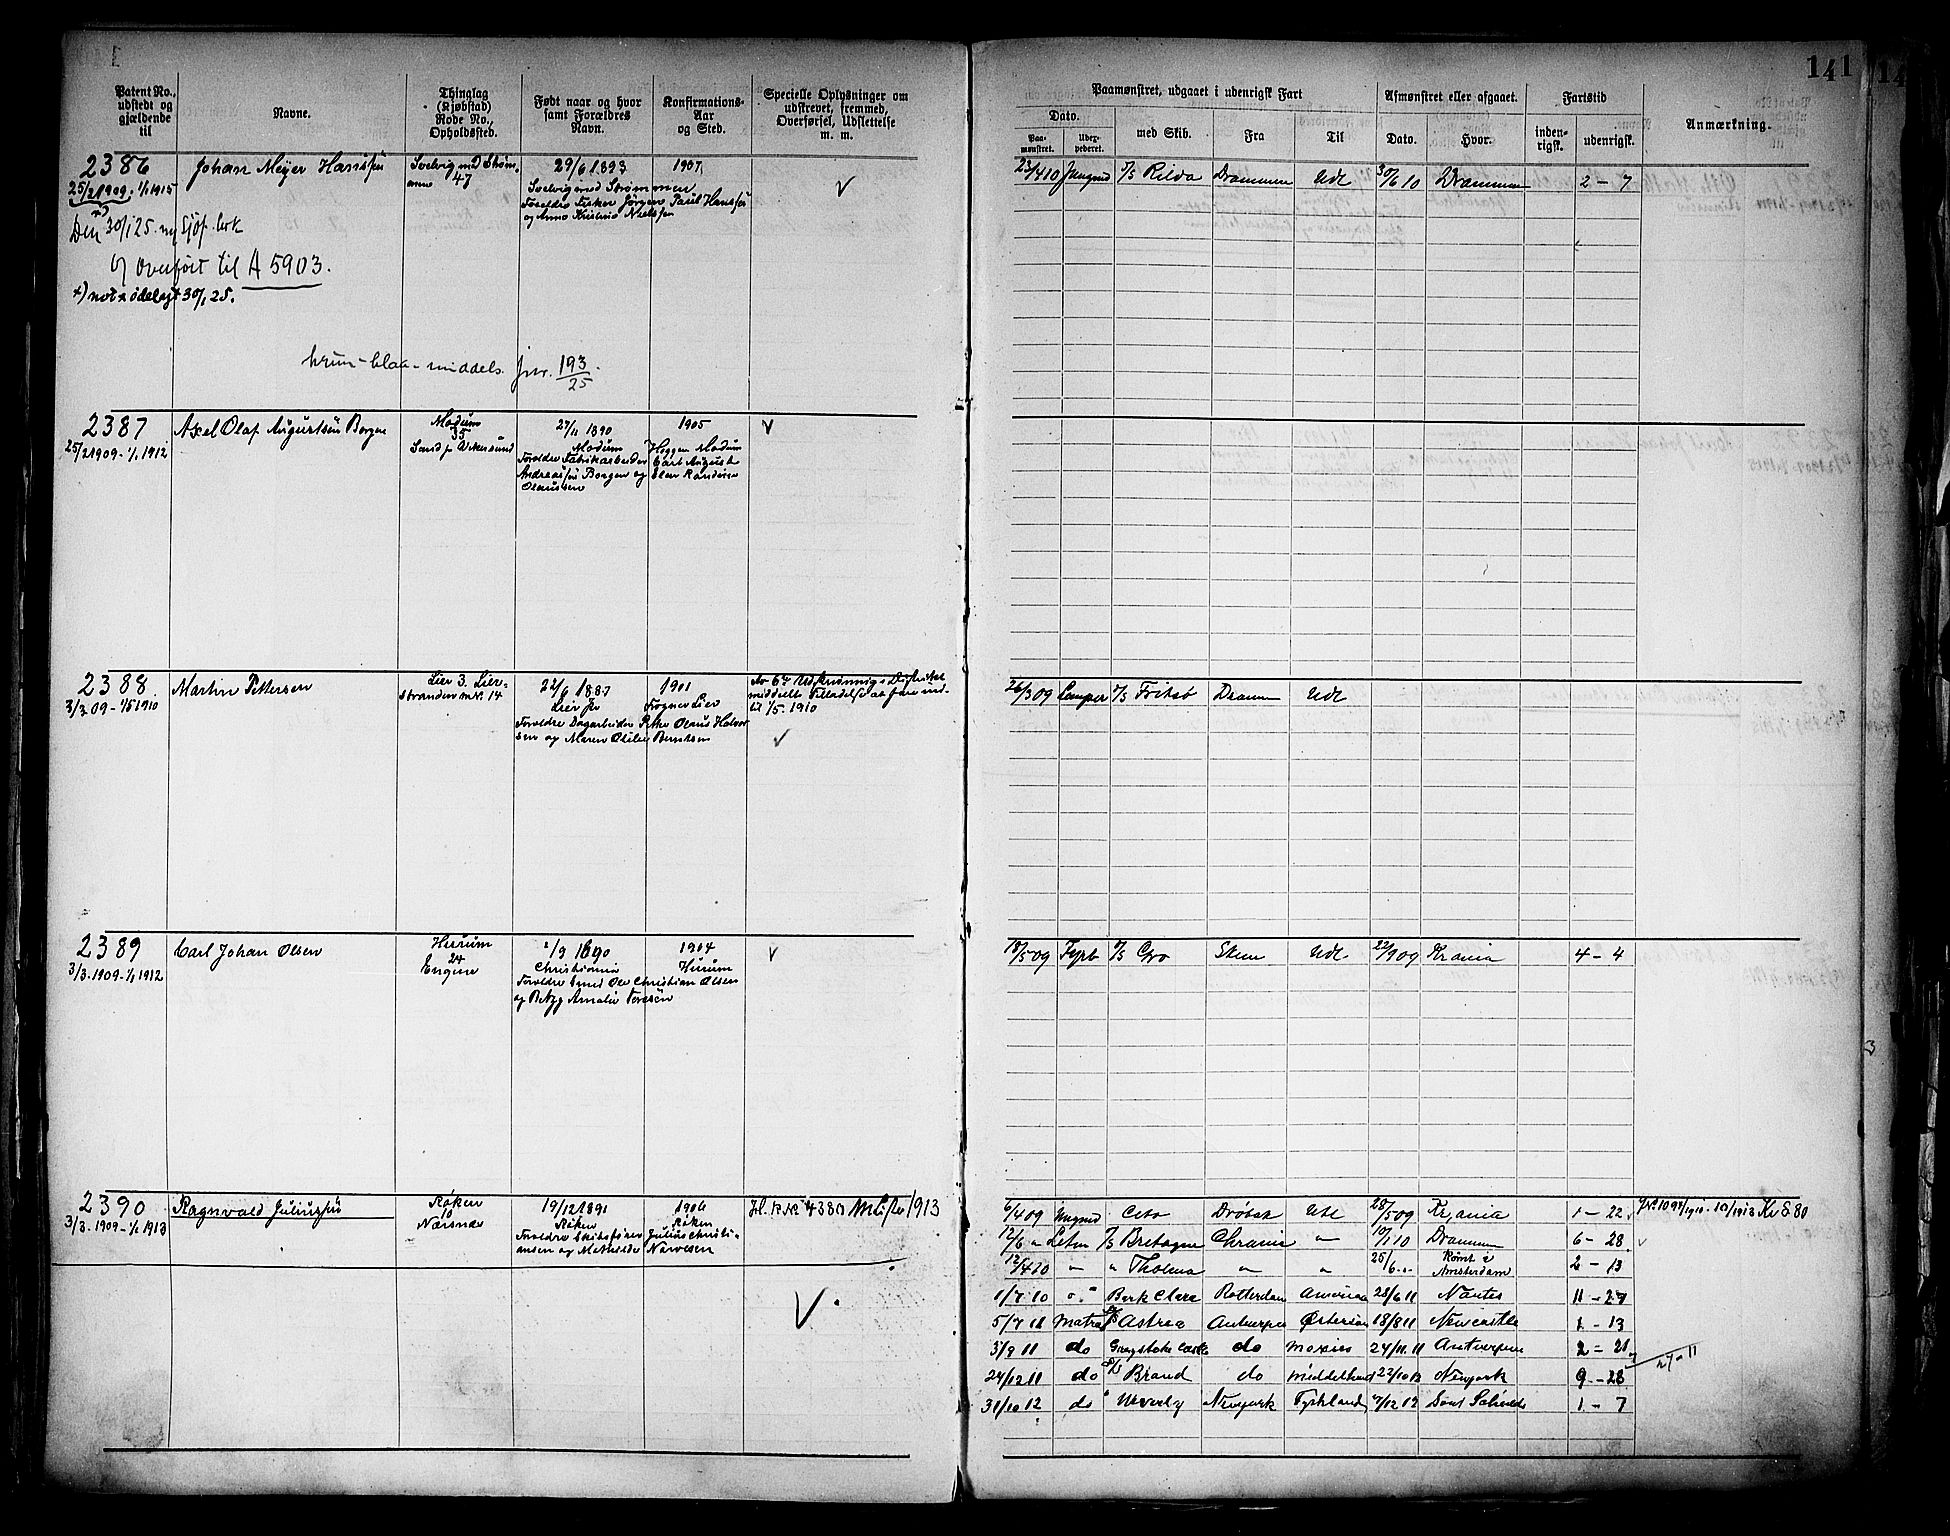 141
Patent No., udstedt og gjældende til
Navne.
Thinglag (Kjøbstad) Rode No., Opholdssted.
Født naar og hvor samt Forældres Navn.
Konfirmations-Aar og Sted.
Specielle Oplysninger om udskrevet, fremmed, Overførsel, Udslettelse m. m.
Paamønstret, udgaaet i udenrigsk Fart
Dato.
Paamønstret.
med Skib.
Fra
Til
Afmønstret eller afgaaet.
Dato.
Hvor.
Fartstid
indenrigsk.
udenrigsk.
Anmærkning.
2386
Johan Meyer Hanssen
47
29/6 1893
1907
25/2 1909 - 1/1 1915
Svelvig med Strømmen
Forældre Fisker Jørgen Paul Hanssen
og Anna Kristine Nielssen
Den 30/1 25. ny sjøf. bok
og overført til A 5903.
x) notx ødelagt 30/1 25.
brun - blaa - middels. jnr. 193/25
23/4 10 Jungmd D/S Rilda Drammen Udl 30/6 10 Drammen 2 - 7
2387
Axel Olaf Augustsen Borgen
Modum
35
27/11 1890
1905
25/2 1909 - 1/1 1912
Modum
Heggen Modum
Forældre Fabrikarbeider Carl August
Andreassen Borgen og Elen Randine
Olaussen
2388
Martin Pettersen
Lier 3. Lier-
stranden m. Nr. 14
22/6 1887
1901
3/3 09 - 1/5 1910
Lier
Frogner Lier
Forældre Dagarbeider Petter Olaus Halvor
sen og Maren Otilie Berntsen
til 1/5. 1910
26/3 09 Lemper D/S Fritzö Dramn Udl
2389
Carl Johan Olsen
Hurum
24
1/9 1890
1904
3/3. 1909 - 1/1 1912
Christiania
Hurum
Forældre Smed Ole Christian Olsen
18/5 09 Fyrb D/S Gro Skien Udl 22/9 09 Krania 4 - 4
2390
Ragnvald Juliussen
Røken
10
Nærsnæs
19/12 1891
1906
3/3. 1909 - 1/1 1913
Røken
Røken
Forældre Skibsfører Julius Christi-
ansen og Mathilde Narvesen
6/4 09 Jungmd Ceto Drøbak Udl 28/5 09 Kr,ania 1 - 22
12/6 " Letm D/S Bretagne Chrania " 10/1 10 Drammen 6 - 28
12/4 10 " " Tholma " " 25/6 " Rømt i Amsterdam 2 - 13
1/7 10 " Bark Clara Rotterdam America 28/6 11 Nantes 11 - 27
5/7 11 Matros D/S Astrea Antwerpen Østersøen 18/8 11 Newcastle 1 - 13
3/9 11 do Greystoke Castle do Mexico 24/11 11 Antwerpen 2 - 21
24/12 11 do S/S Brand do Middelhavet 22/10 12 Newyork 9 - 28
27 - 11
31/10 12 do " Waverly Newyork Tyskland 7/12 12 1 - 7